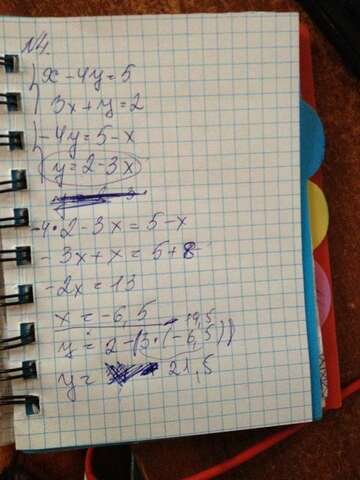 №4.
x - 4y = 5
3x + y = 2
-4y = 5 - x
y = 2 - 3x
-4 · 2 - 3x = 5 - x
-3x + x = 5 + 8
-2x = 13
x = -6,5
-19,5
y = 2 - (3 · (-6,5))
y = 21,5